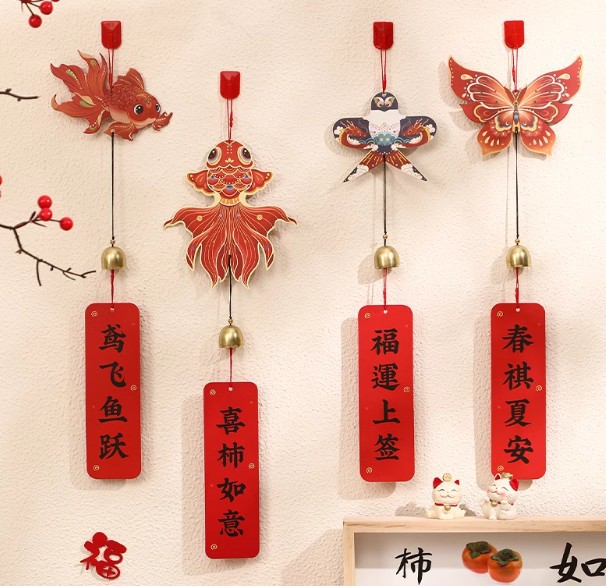 鸢飞鱼跃
喜柿如意
福運上签
春祺夏安
福
柿 如